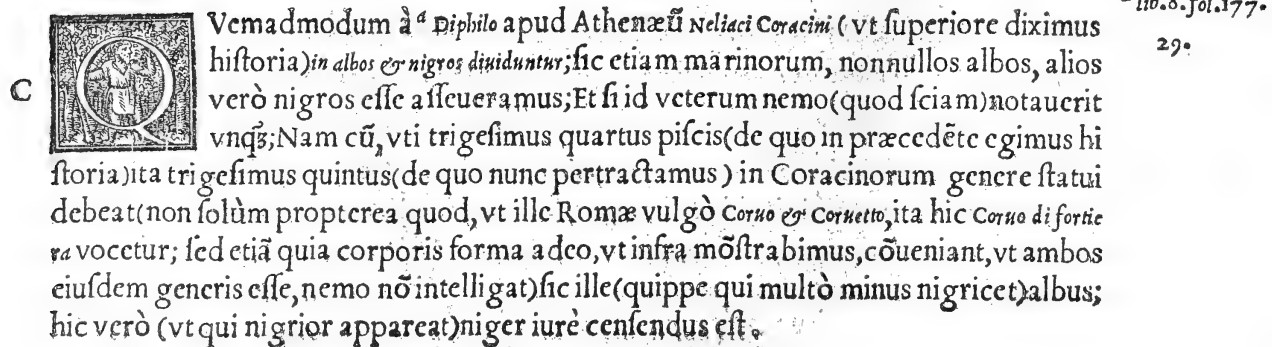 QVemadmodum à ᵃ Diphilo apud Athenæũ Neliaci Coracini (vt ſuperiore diximus
hiſtoria)in albos & nigros diuiduntur;ſic etiam marinorum, nonnullos albos, alios
verò nigros eſſe aſſeueramus;Et ſi id veterum nemo(quod ſciam)notauerit
vnqꝫ;Nam cũ, vti trigeſimus quartus piſcis(de quo in præcedẽte egimus hi
ſtoria)ita trigeſimus quintus(de quo nunc pertractamus) in Coracinorum genere ſtatui
debeat(non ſolùm propterea quod, vt ille Romæ vulgò Coruo & Coruetto,ita hic Coruo di fortie
ra vocetur; ſed etiã quia corporis forma adeo, vt infra mõſtrabimus, cõueniant, vt ambos
eiuſdem generis eſſe, nemo nõ intelligat)ſic ille(quippe qui multò minus nigricet)albus;
hic verò (vt qui nigrior appareat)niger iurè cenſendus eſt.
C
lib.8.fol.177.
29.